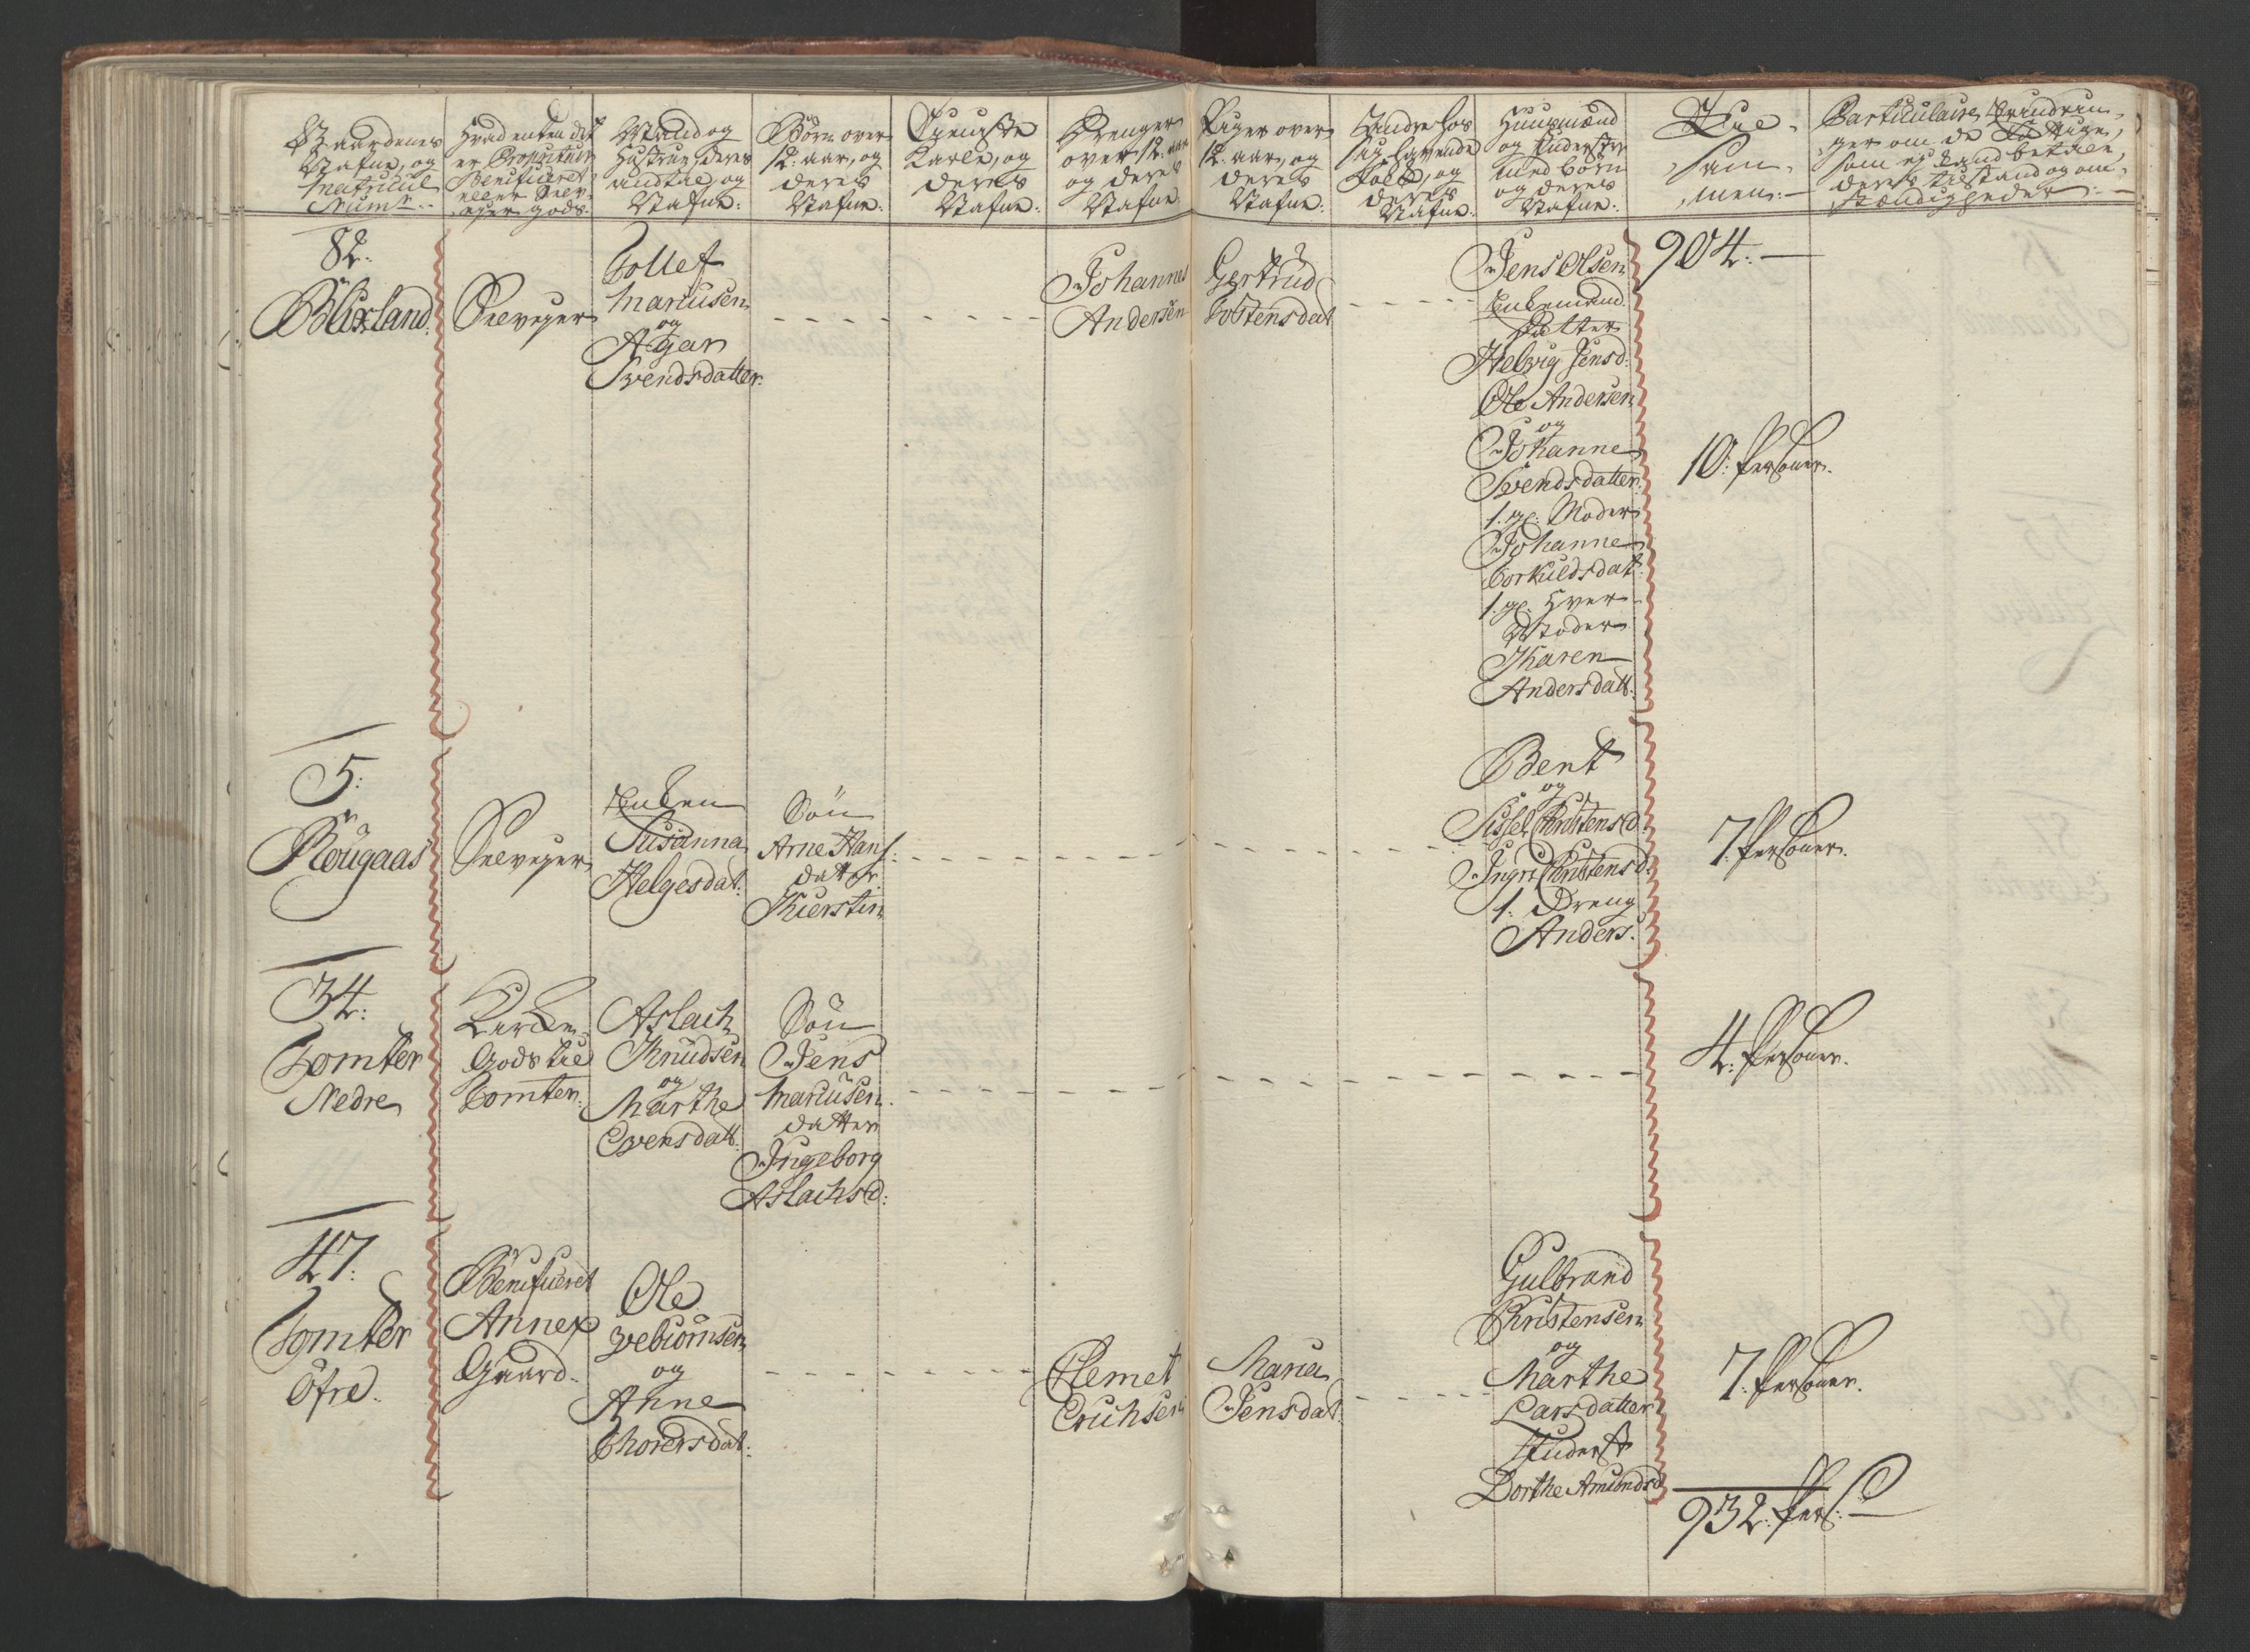 Gaardenes
Nafne, og
Matricul
Num:
Hvad enten det
er Proprietair
Beneficeret
eller Selv-
eyer gods.
Mand og
Hustrue, deres
andtal og
Nafne:
Børn over
12: aar, og
deres
Nafne:
Tieniste
Karle, og
deres
Nafne:
Drenger
over 12: aar
og deres
Nafne
Piger over
12: aar, og
deres
Nafne:
Andre hos
sig havende
Folk, og
deres
Nafne:
Huusmænd
og Inderster
med børn
og deres
Nafne:
Til-
sam-
men:
Particulaire Erindrin-
ger om de fattige,
som ej kand betale,
deres tilstand og om-
stændigheder:
82.
Blixland.
Selveyer
Tollef
Mariusen
og
Agar
Svendsdatter.
Johannes
Andersen
Gertrud
Tostensdat
Jens Olsen
Enkemand
datter
Helvig Jensd:
Ole Andersen
og
Johanne
Svendsdatter.
1. gl: Moder
Johanne
Torkuldsdat:
1. gl: Hver
Moder
Karen
Andersdatt.
904.
10: Personer.
5:
Rougaas
Selveyer
Enken
Susanna
Helgesdat:
Søn
Arne Hans:
datter
Kierstin
Bent
og
Sissel Christensd.
Ingri Christensd:
1. Dreng
Anders.
7. Personer.
34:
Tomter
Nedre
Kirke-
Gods til
Tomter.
Aslach
Knudsen
og
Marthe
Evensdatt.
Søn
Jens
Mariusen.
datter
Ingeborg
Aslachsd:
4. Personer.
47:
Tomter
Øfre.
Beneficeret
Annex
Gaard.
Ole
Vebiørnsen
og
Anne
Thorersdat:
Clemet
Erichsen
Maria
Jensdat
Gulbrand
Christensen
og
Marthe
Larsdatter
Inderst
Dorthe Amundsd
7. Personer.
932. Pers: